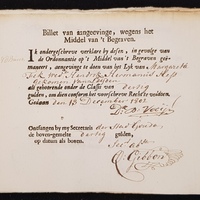 Billet van aangeevinge, wegens het
Middel van 't Begraven.
Ik ondergeschreve verklare by desen, in gevolge van
de Ordonnantie op 't Middel van 't Begraven geë-
maneert, aangevinge te doen van het Lyk van Margareth
Hermanus
als gehoorende onder de Classe van dertig
gulden, om dien conform het voorschreve Recht te voldoen.
Gedaan den 13 December 1803
Ontfangen by my Secretaris der Stad Gouda,
de boven-gemelte dertig gulden,
op datum als boven.